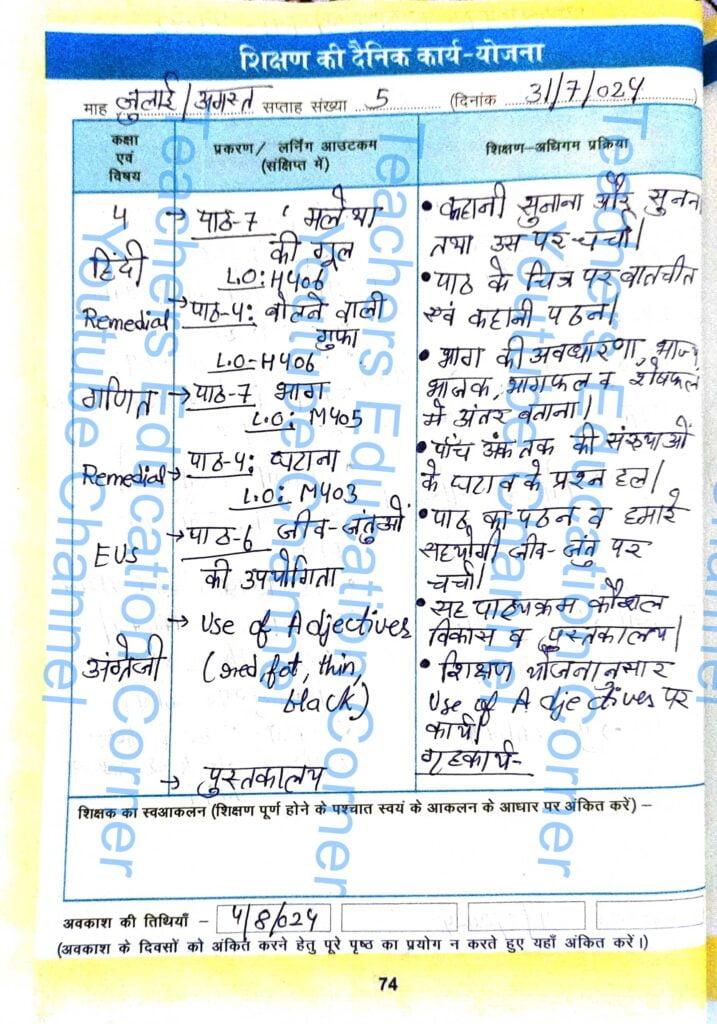 शिक्षण की दैनिक कार्य-योजना
माह जुलाई/अगस्त सप्ताह संख्या 5 (दिनांक 31/7/024
कक्षा एवं विषय
प्रकरण/ लर्निंग आउटकम (संक्षिप्त में)
शिक्षण-अधिगम प्रक्रिया
4
हिंदी
→ पाठ-7 ' मलेथा
की गूल
L.O: H406
Remedial
→ पाठ-4: बोलने वाली
गुफा
L.O-H406
गणित
→ पाठ-7 भाग
L.O: M405
Remedial
→ पाठ-4: घटाना
L.O: M403
EVS
→ पाठ-6 जीव-जंतुओं
की उपयोगिता
अंग्रेजी
→ Use of Adjectives
(red, fat, thin,
black)
→ पुस्तकालय
• कहानी सुनाना और सुनना
तथा उस पर चर्चा।
• पाठ के चित्र पर बातचीत
एवं कहानी पठन।
• भाग की अवधारणा, भाज्य
भाजक, भागफल व शेषफल
में अंतर बताना।
• पाँच अंक तक की संख्याओं
के घटाव के प्रश्न हल।
• पाठ का पठन व हमारे
सहयोगी जीव-जंतु पर
चर्चा।
• सह पाठ्यक्रम कौशल
विकास व पुस्तकालय।
• शिक्षण योजनानुसार
Use of Adjectives पर
कार्य।
गृहकार्य-
शिक्षक का स्वआकलन (शिक्षण पूर्ण होने के पश्चात स्वयं के आकलन के आधार पर अंकित करें) –
अवकाश की तिथियाँ - 4/8/024
(अवकाश के दिवसों को अंकित करने हेतु पूरे पृष्ठ का प्रयोग न करते हुए यहाँ अंकित करें।)
74
Teachers Education Corner
Youtube Channel
Teachers Education Corner
Youtube Channel
Teachers Education Corner
Youtube Channel